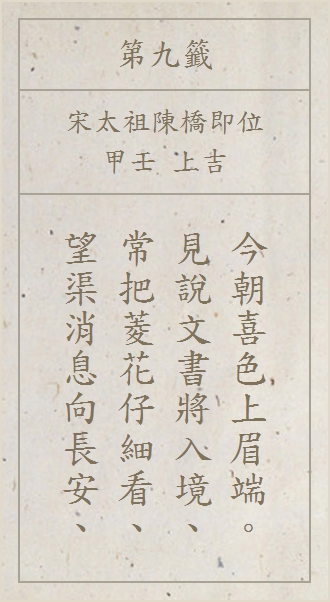 第九籤
宋太祖陳橋即位
甲壬 上吉
望渠消息向長安、
常把菱花仔細看、
見說文書將入境、
今朝喜色上眉端。